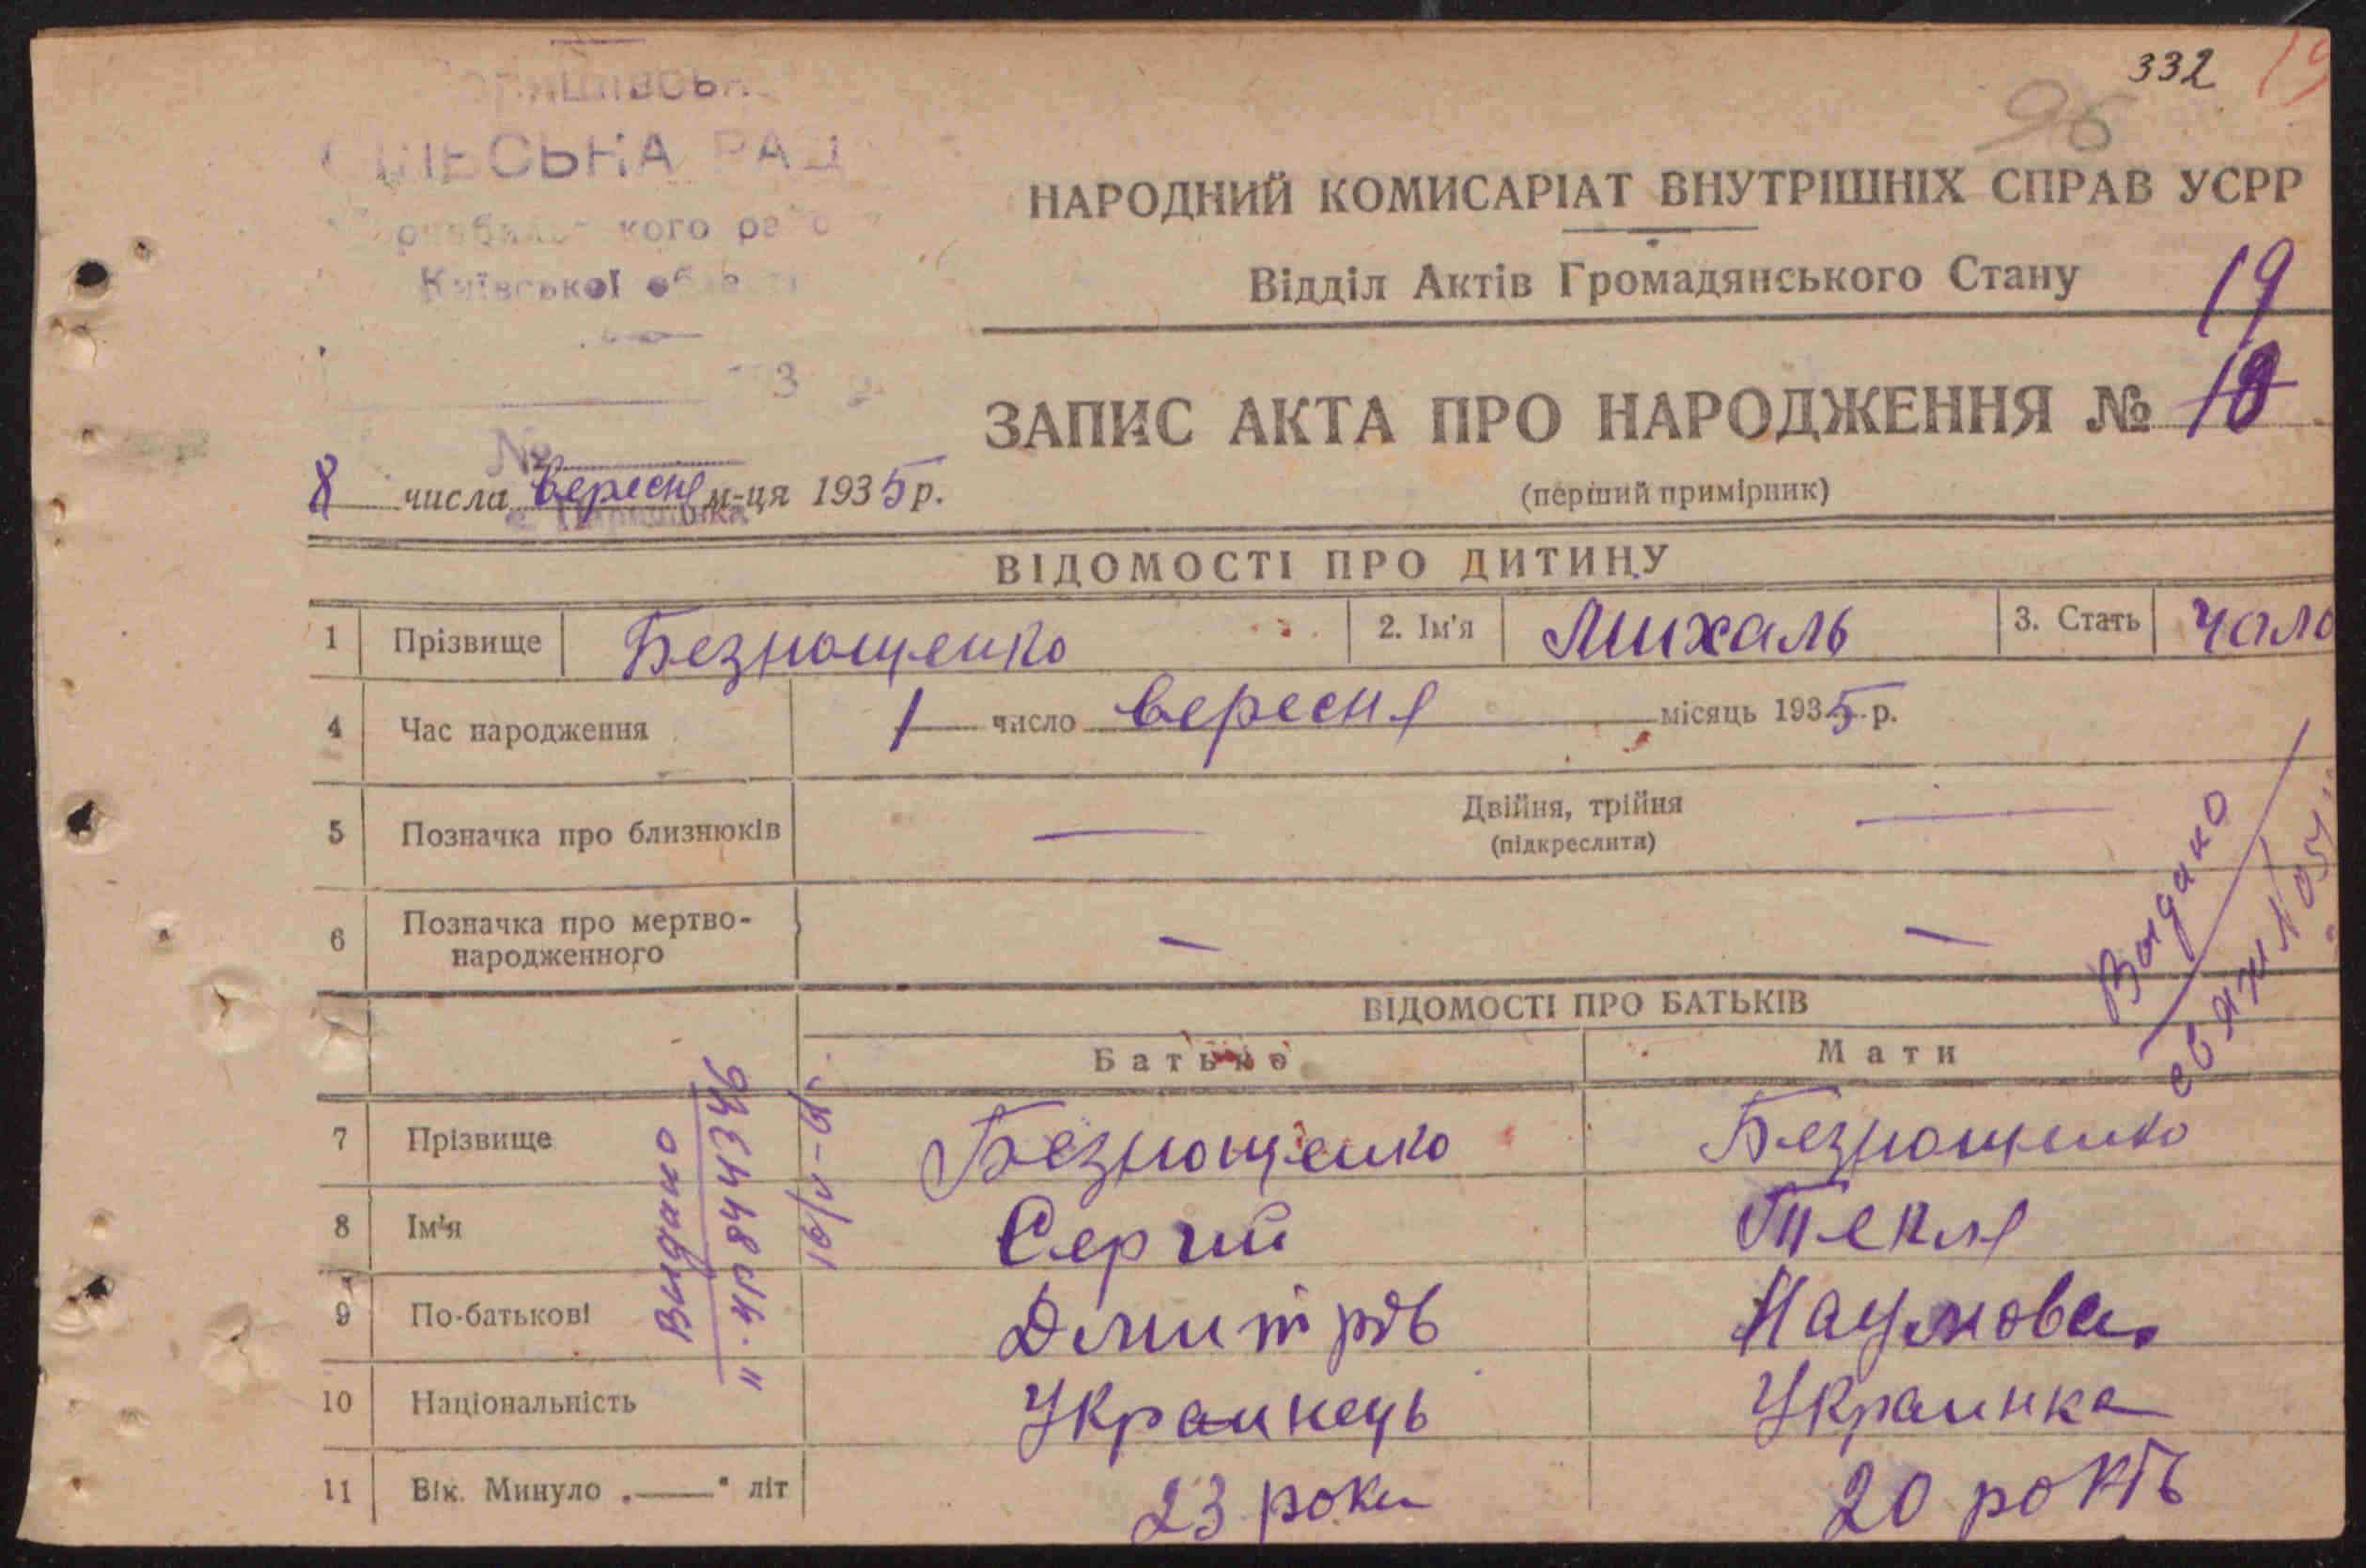 332 19
96
СІЛЬСЬКА РАДА
Київської
НАРОДНИЙ КОМИСАРІАТ ВНУТРІШНІХ СПРАВ УСРР
Відділ Актів Громадянського Стану
19
ЗАПИС АКТА ПРО НАРОДЖЕННЯ № 18
(перший примірник)
№
8 числа вересня м-ця 1935 р.
ВІДОМОСТІ ПРО ДИТИНУ
1 Прізвище Безнощенко 2. Ім'я Михаль 3. Стать чоло
4 Час народження 1 число вересня місяць 1935 р.
5 Позначка про близнюків — Двійня, трійня —
(підкреслити)
6 Позначка про мертво-
народженного — —
Видано
ВІДОМОСТІ ПРО БАТЬКІВ
Батько Мати
7 Прізвище Безнощенко Безнощенко
8 Ім'я Сергий Текля
9 По-батькові Дмитрів Наумова
10 Національність Украинець Украинка
11 Вік. Минуло „——" літ 23 роки 20 років
Видано